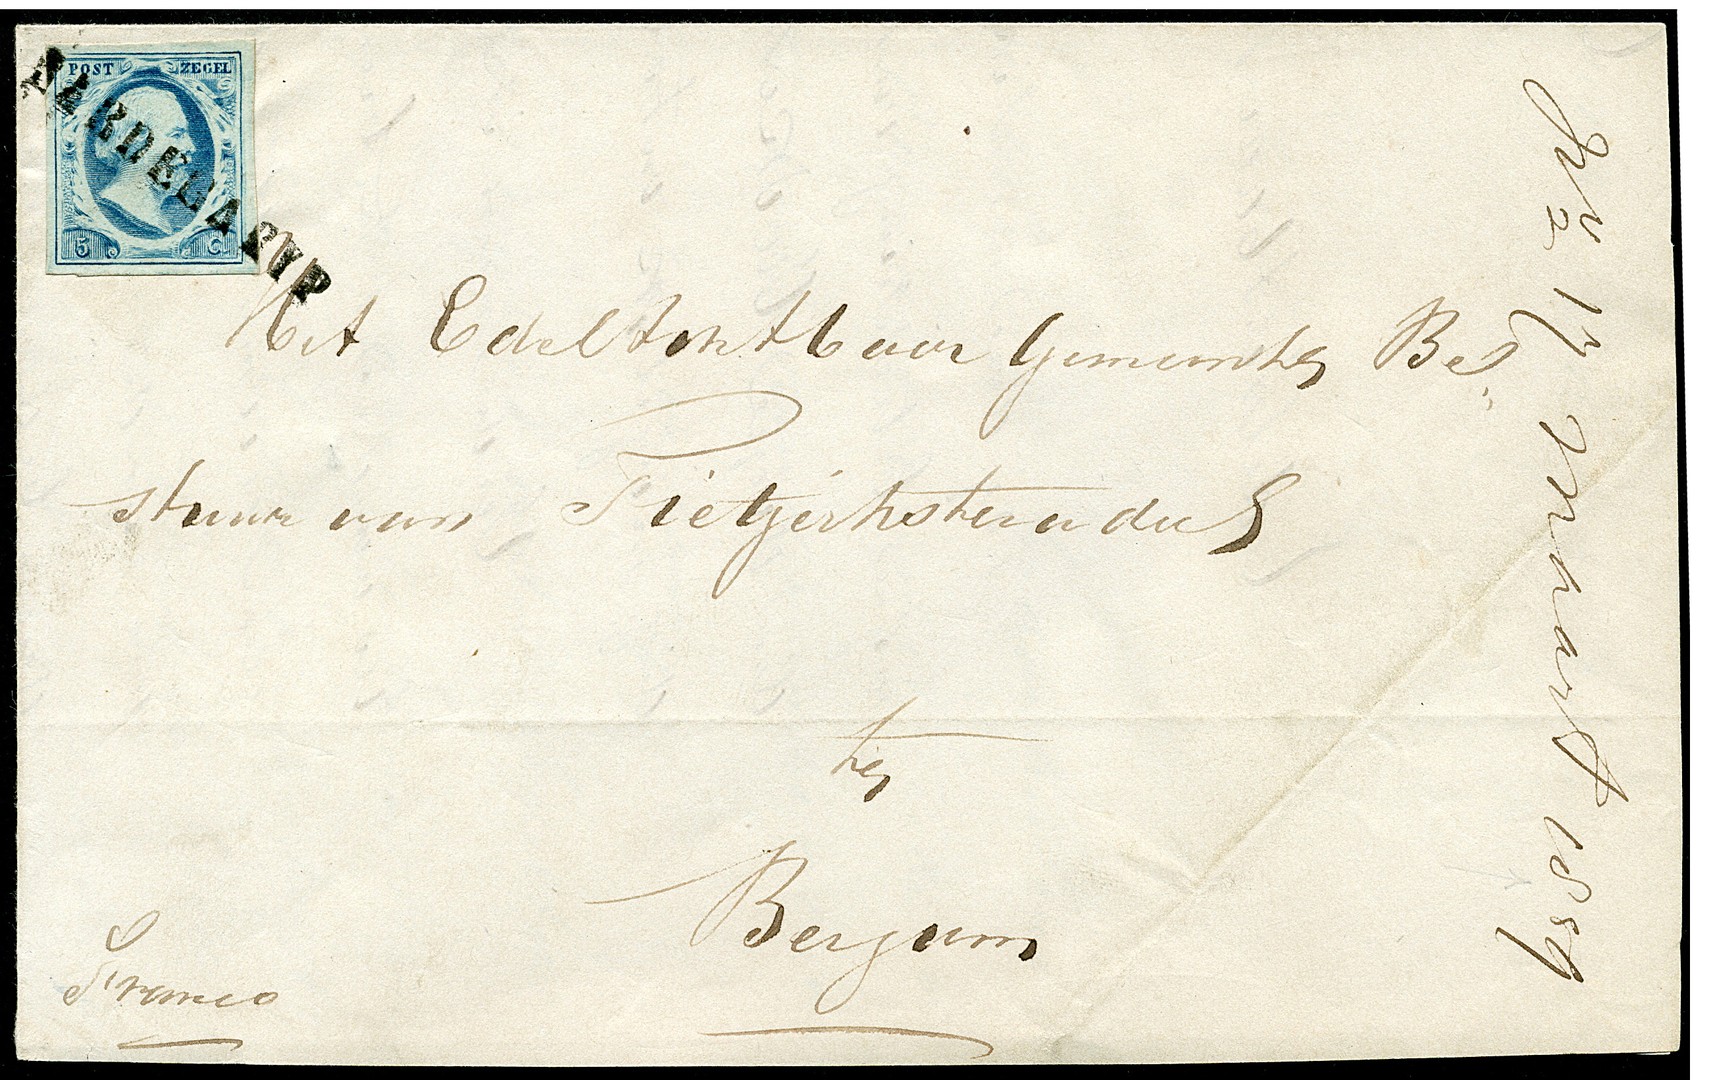 POST ZEGEL
5 C
PAARDELAPYP
Het Edelachtbaar Gemeente Be-
stuur van Tietjerksteradeel
te
Bergum
Franco
17 Maart 1859